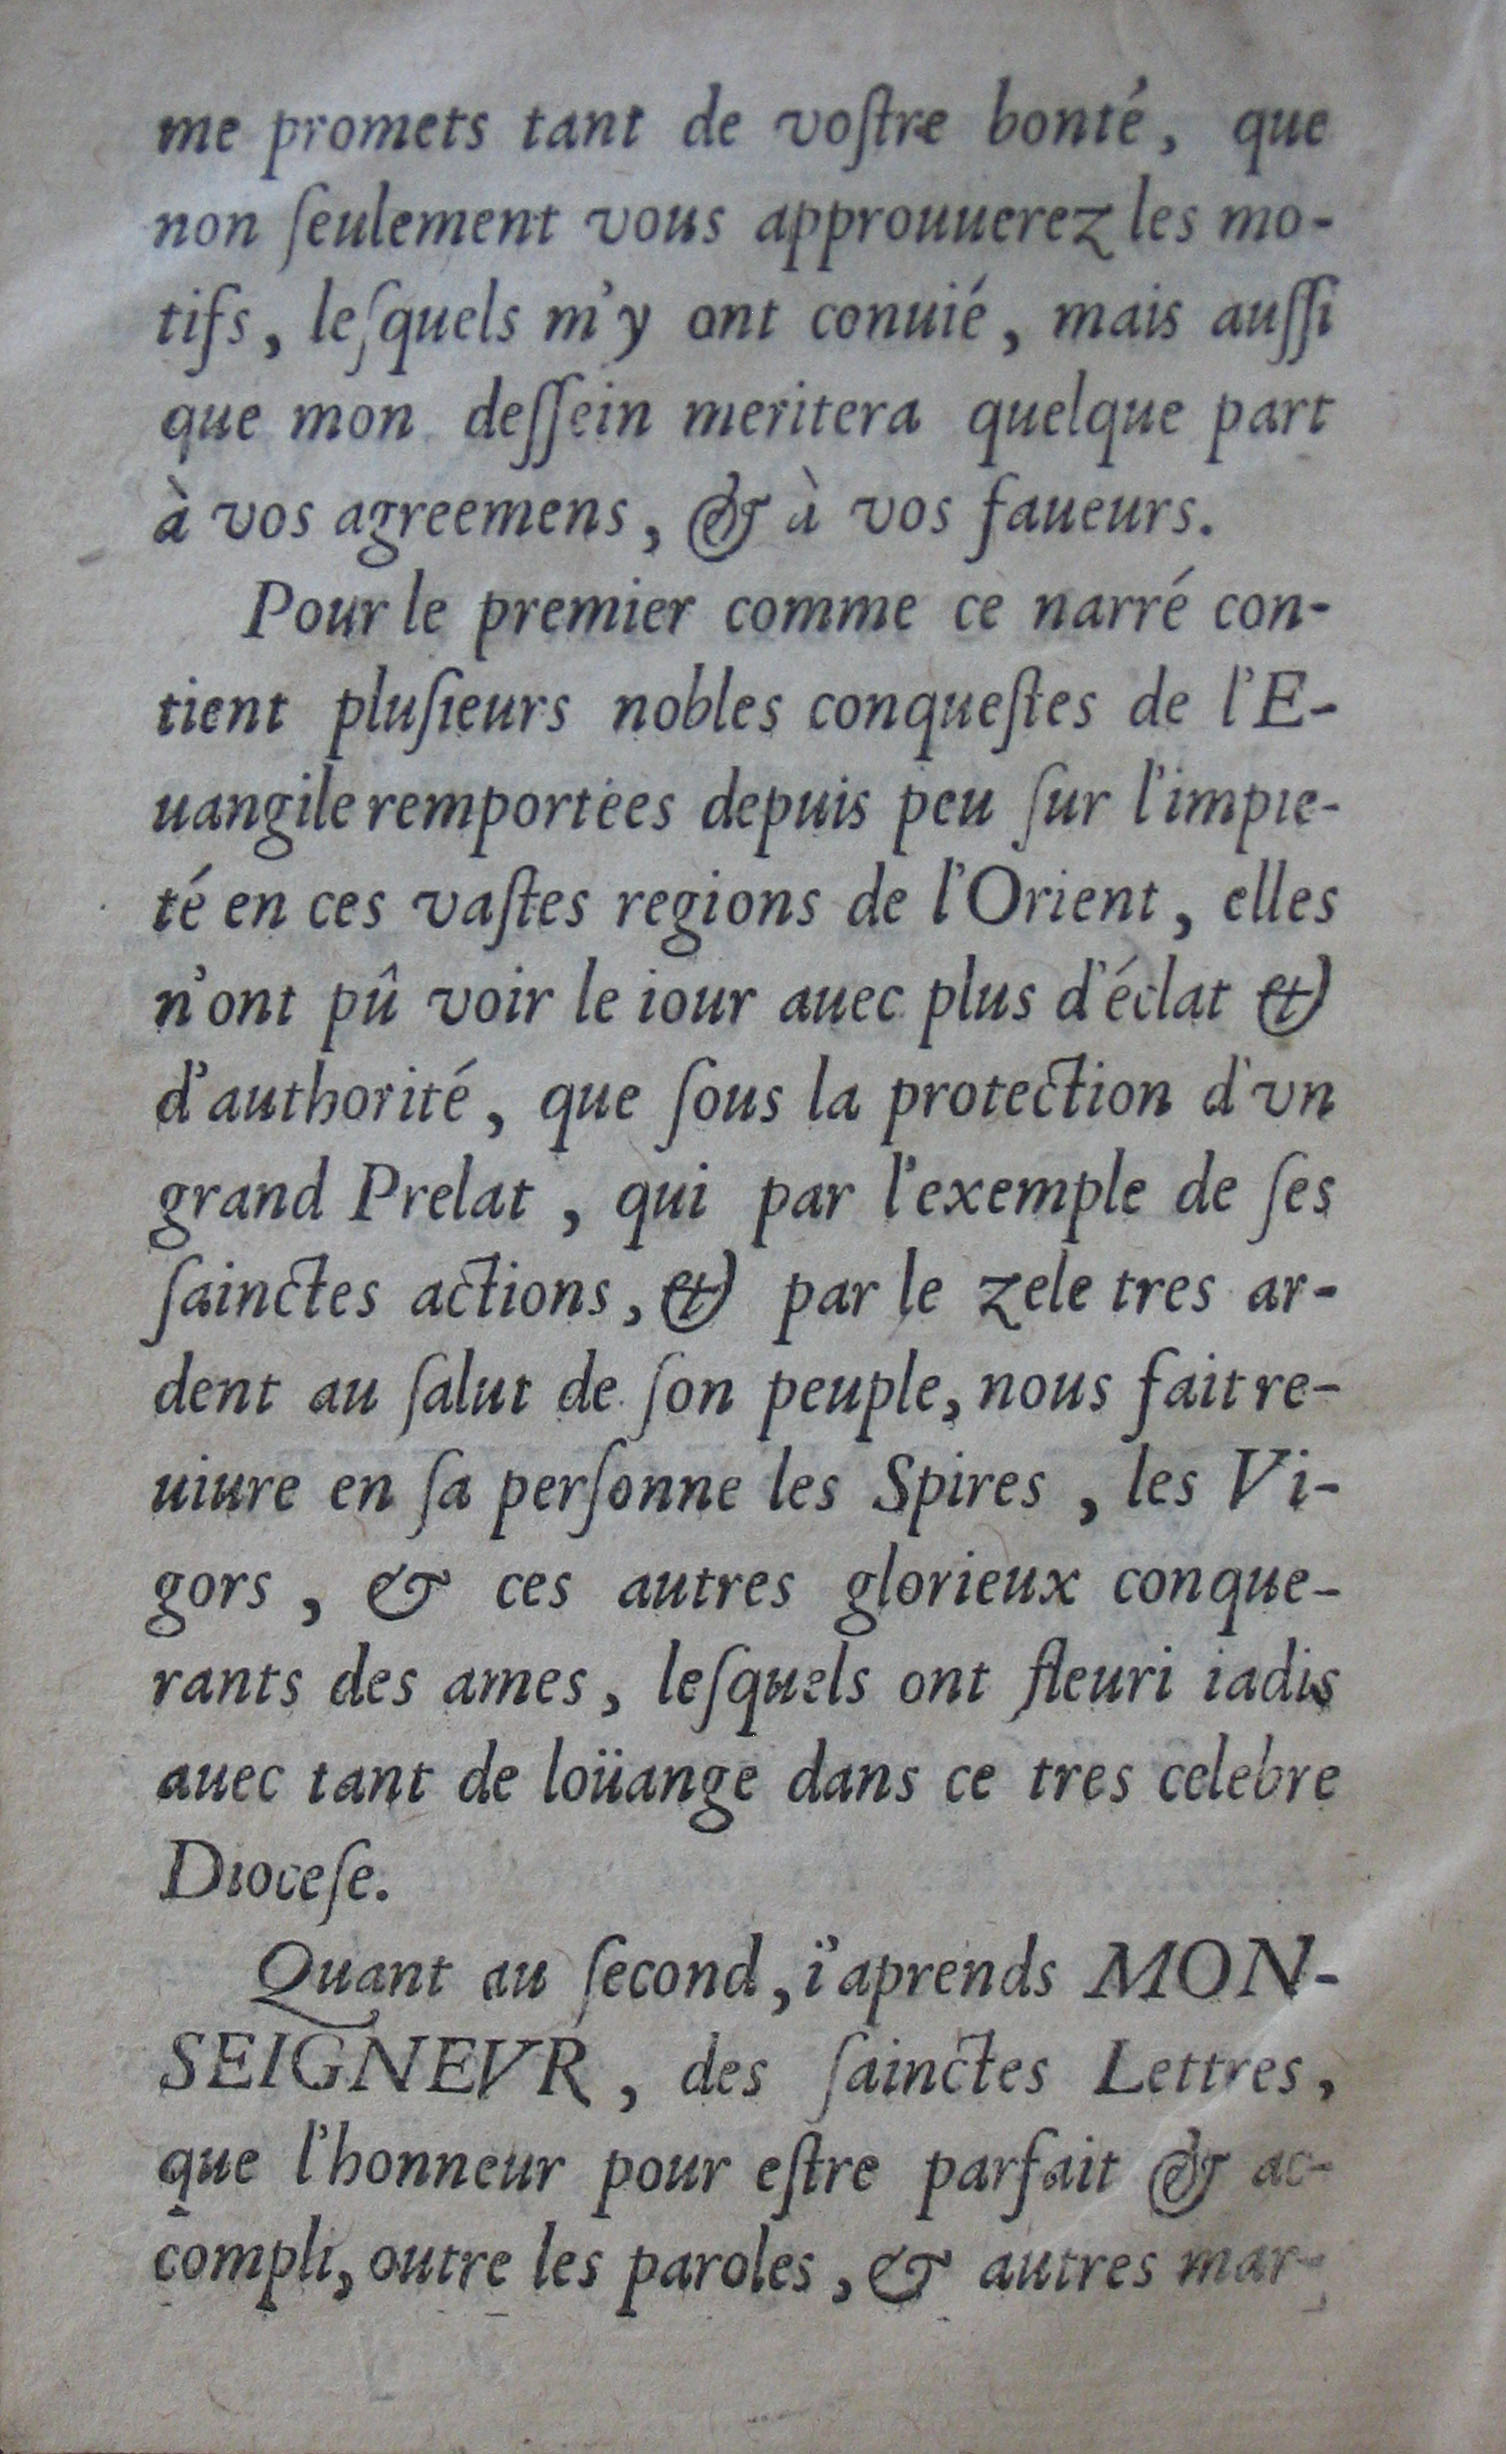 me promets tant de voſtre bonté, que
non ſeulement vous approuuerez les mo-
tifs, leſquels m'y ont conuié, mais auſſi
que mon deſſein meritera quelque part
à vos agreemens, & à vos faueurs.
Pour le premier comme ce narré con-
tient pluſieurs nobles conqueſtes de l'E-
uangile remportées depuis peu ſur l'impie-
té en ces vaſtes regions de l'Orient, elles
n'ont pû voir le iour auec plus d'éclat &
d'authorité, que ſous la protection d'vn
grand Prelat, qui par l'exemple de ſes
ſainctes actions, & par le zele tres ar-
dent au ſalut de ſon peuple, nous fait re-
uiure en ſa perſonne les Spires, les Vi-
gors, & ces autres glorieux conque-
rants des ames, leſquels ont fleuri iadis
auec tant de loüange dans ce tres celebre
Dioceſe.
Quant au ſecond, i'aprends MON-
SEIGNEVR, des ſainctes Lettres,
que l'honneur pour eſtre parfait & ac-
compli, outre les paroles, & autres mar-